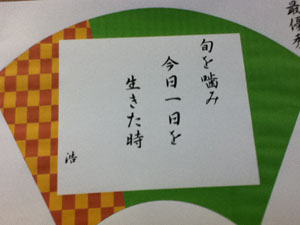 最優秀
旬を噛み
今日一日を
生きた時
浩